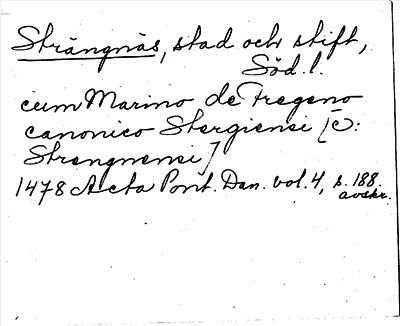 Strängnäs, stad och stift,
Söd. l.
cum Marino de Fregeno
canonico Stergiensi [ɔ:
Strengnensi]
1478 Acta Pont. Dan. vol. 4, s. 188.
avskr.